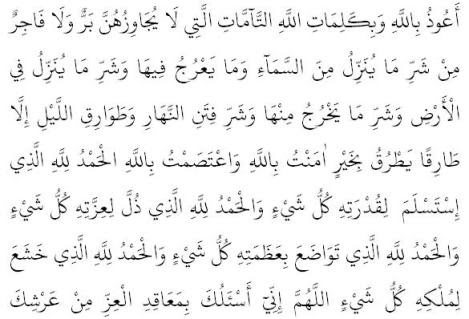 أَعُوذُ بِاللَّهِ وَبِكَلِمَاتِ اللَّهِ التَّآمَّاتِ الَّتِي لَا يُجَاوِزُهُنَّ بَرٌّ وَلَا فَاجِرٌ
مِنْ شَرِّ مَا يُنَزِّلُ مِنَ السَّمَآءِ وَمَا يَعْرُجُ فِيهَا وَشَرِّ مَا يُنَزِّلُ فِي
الْأَرْضِ وَشَرِّ مَا يَخْرُجُ مِنْهَا وَشَرِّ فِتَنِ النَّهَارِ وَطَوَارِقِ اللَّيْلِ إِلَّا
طَارِقًا يَطْرُقُ بِخَيْرٍ اٰمَنْتُ بِاللَّهِ وَاعْتَصَمْتُ بِاللَّهِ الْحَمْدُ لِلَّهِ الَّذِي
إِسْتَسْلَمَ لِقُدْرَتِهِ كُلُّ شَيْءٍ وَالْحَمْدُ لِلَّهِ الَّذِي ذُلَّ لِعِزَّتِهِ كُلُّ شَيْءٍ
وَالْحَمْدُ لِلَّهِ الَّذِي تَوَاضَعَ بِعَظَمَتِهِ كُلُّ شَيْءٍ وَالْحَمْدُ لِلَّهِ الَّذِي خَشَعَ
لِمُلْكِهِ كُلُّ شَيْءٍ اللَّهُمَّ إِنِّيْ أَسْئَلُكَ بِمَعَاقِدِ الْعِزِّ مِنْ عَرْشِكَ